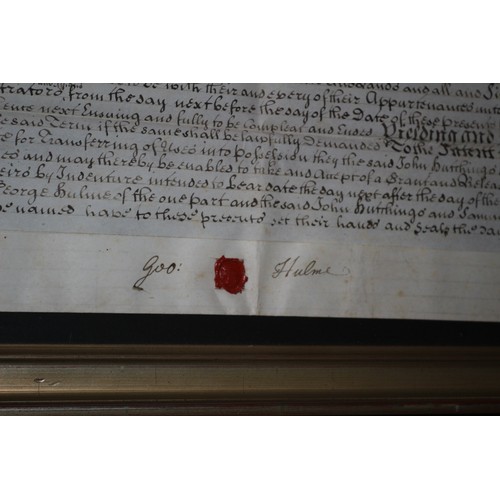 with their and every of their Appurtenances unto
trators, from the day next before the day of the Date of these presents
next Ensuing and fully to be compleat and Ended. Yielding and
said Term if the same shall be lawfully Demanded To the Intent
for Transferring of Uses into Possession they the said John Hutchings
and may thereby be enabled to take and Accept of a Grant and Release
by Indenture intended to bear date the day next after the day of the
George Hulme of the one part and the said John Hutchings and Samu
named have to these presents set their hands and Seals the Day
Geo: Hulme